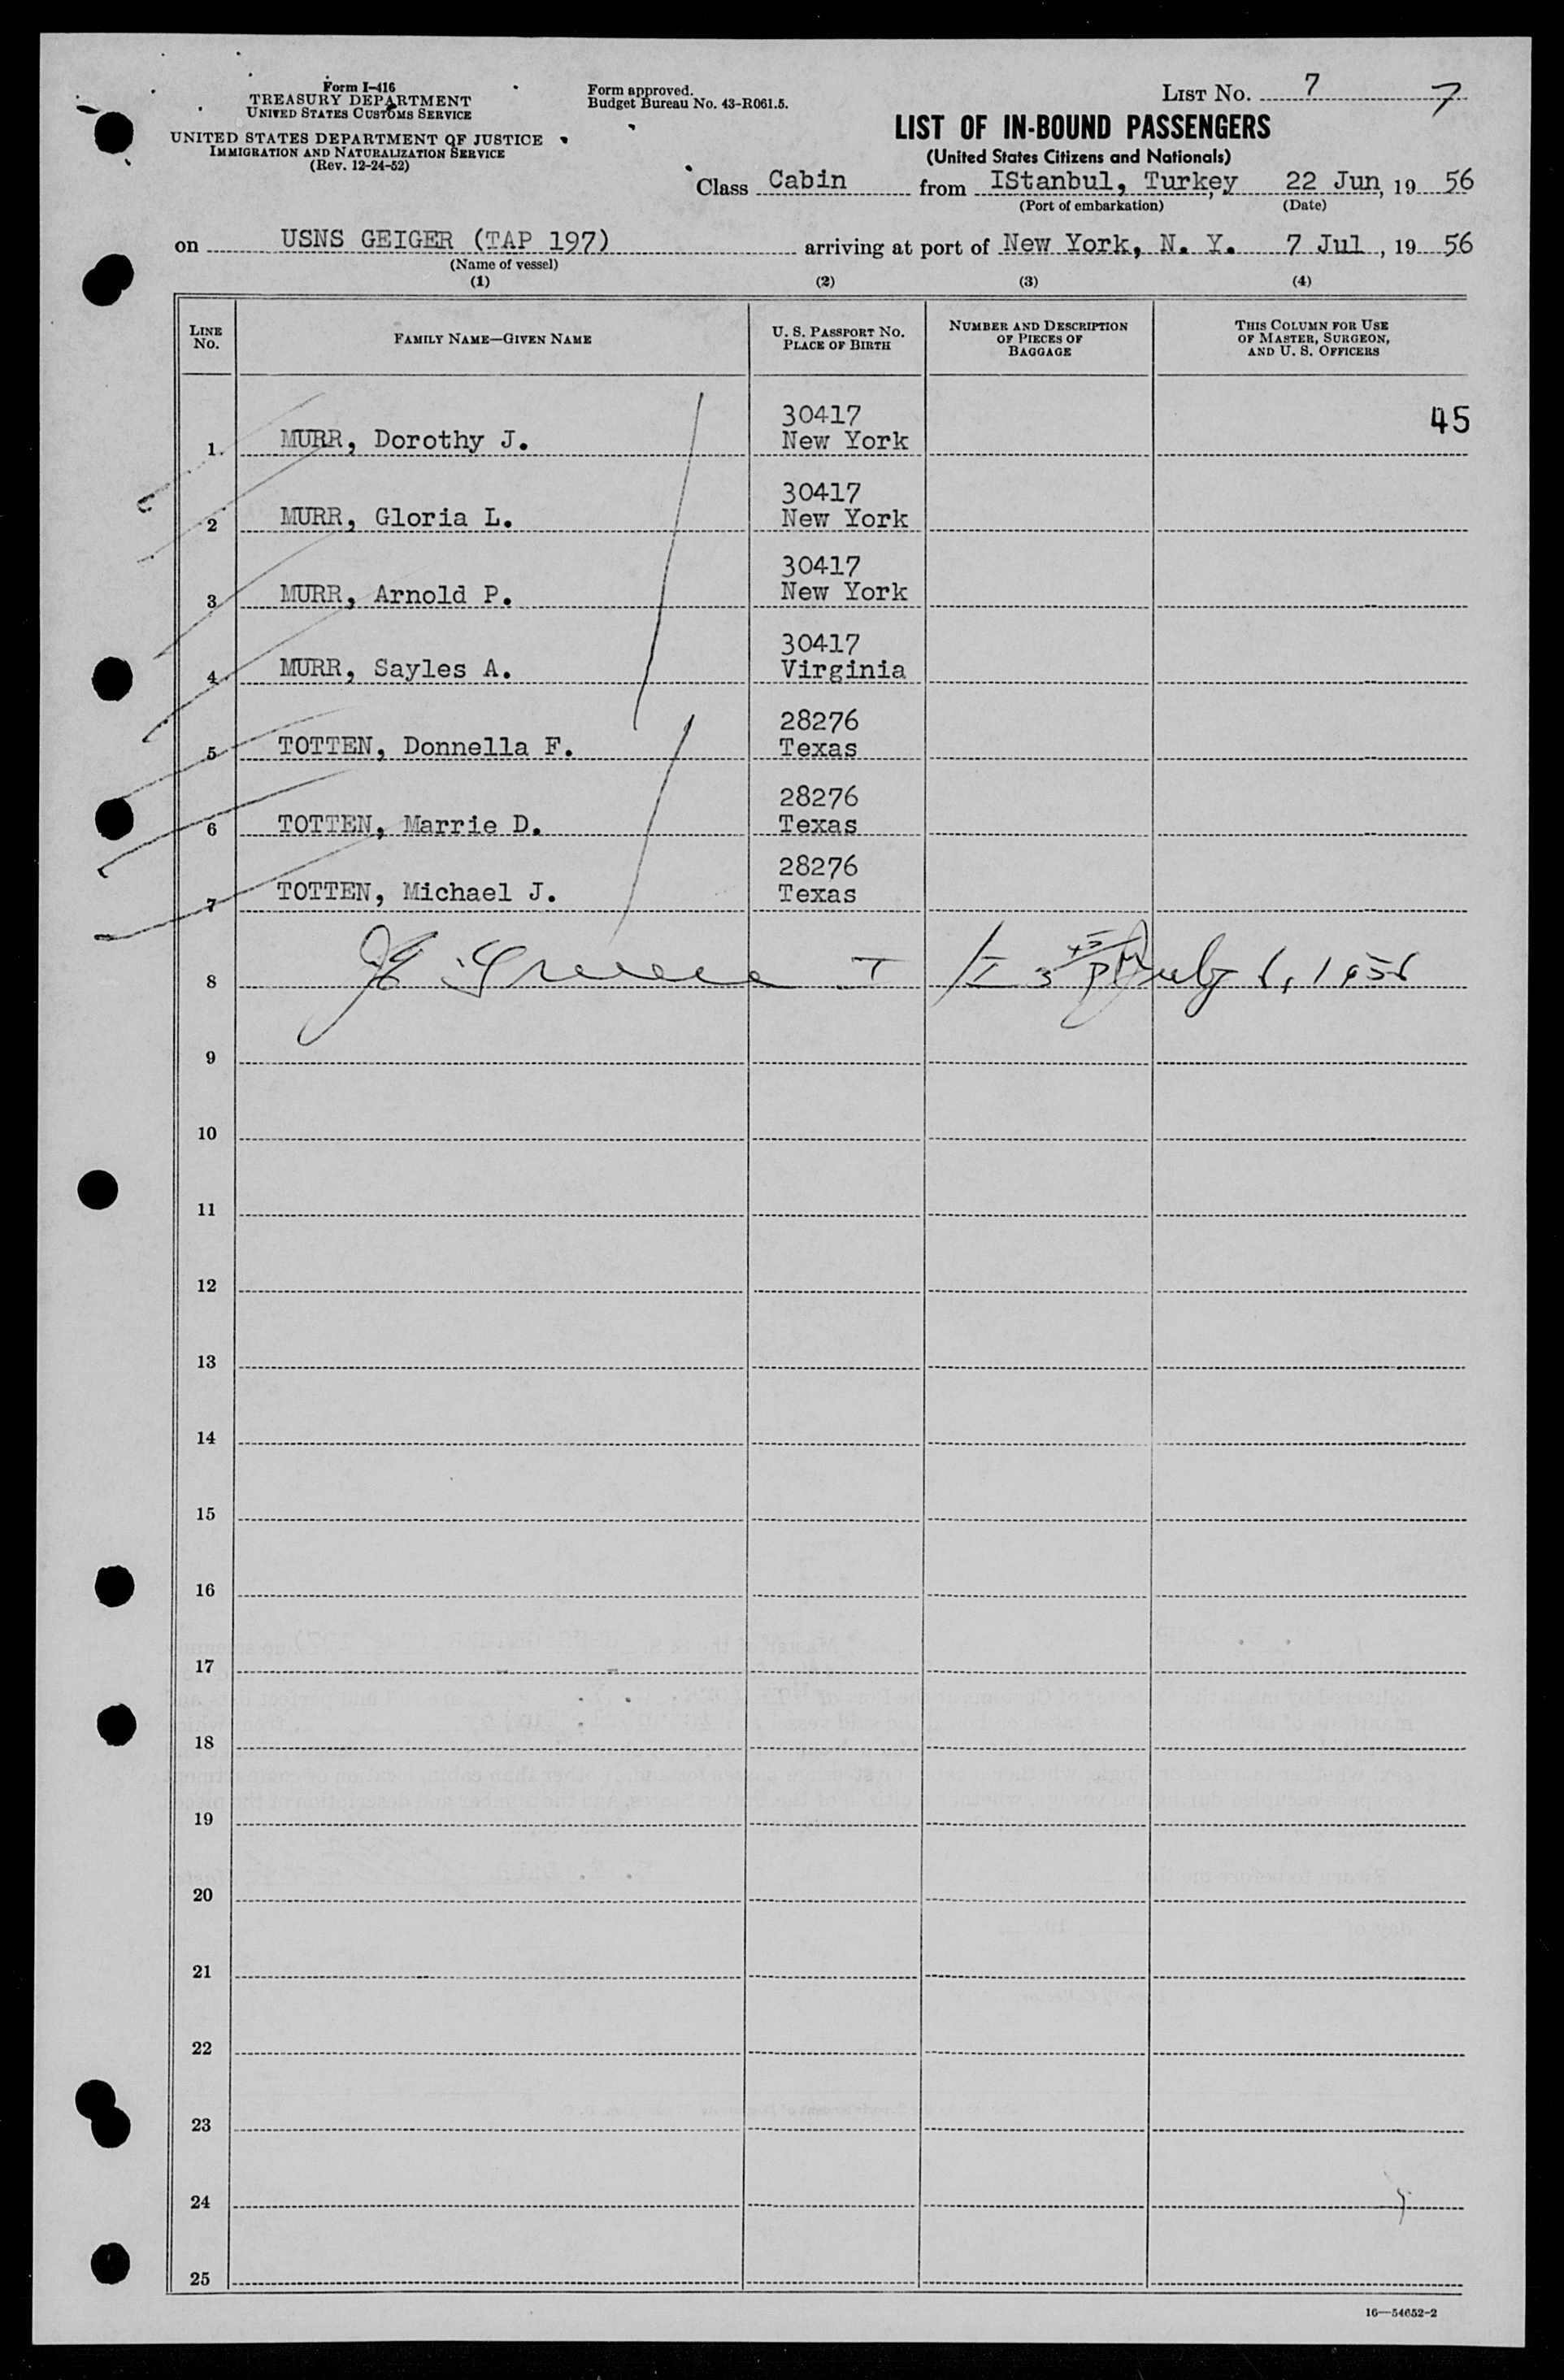 Form I-416
TREASURY DEPARTMENT
UNITED STATES CUSTOMS SERVICE
UNITED STATES DEPARTMENT OF JUSTICE
IMMIGRATION AND NATURALIZATION SERVICE
(Rev. 12-24-52)
Form approved.
Budget Bureau No. 43-R061.5.
LIST No. 7 7
LIST OF IN-BOUND PASSENGERS
(United States Citizens and Nationals)
Class Cabin from IStanbul, Turkey 22 Jun, 19 56
(Port of embarkation) (Date)
on USNS GEIGER (TAP 197) arriving at port of New York, N. Y. 7 Jul, 19 56
(Name of vessel)
(1) (2) (3) (4)
LINE No. FAMILY NAME—GIVEN NAME U. S. PASSPORT No. PLACE OF BIRTH NUMBER AND DESCRIPTION OF PIECES OF BAGGAGE THIS COLUMN FOR USE OF MASTER, SURGEON, AND U. S. OFFICERS
30417 45
1 MURR, Dorothy J. New York
30417
2 MURR, Gloria L. New York
30417
3 MURR, Arnold P. New York
30417
4 MURR, Sayles A. Virginia
28276
5 TOTTEN, Donnella F. Texas
28276
6 TOTTEN, Marrie D. Texas
28276
7 TOTTEN, Michael J. Texas
8 July 6, 1956
9
10
11
12
13
14
15
16
17
18
19
20
21
22
23
24
25
16—54652-2